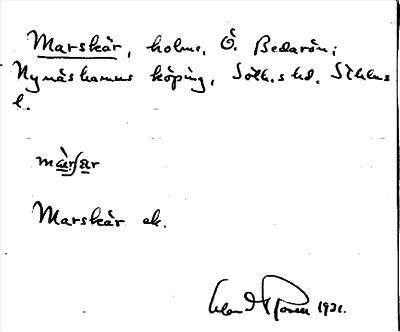 Marskär, holme, Ö. Bedarön;
Nynäshamns köping, Soth. hd, Sthlms
l.
Marskär ek.
1931.